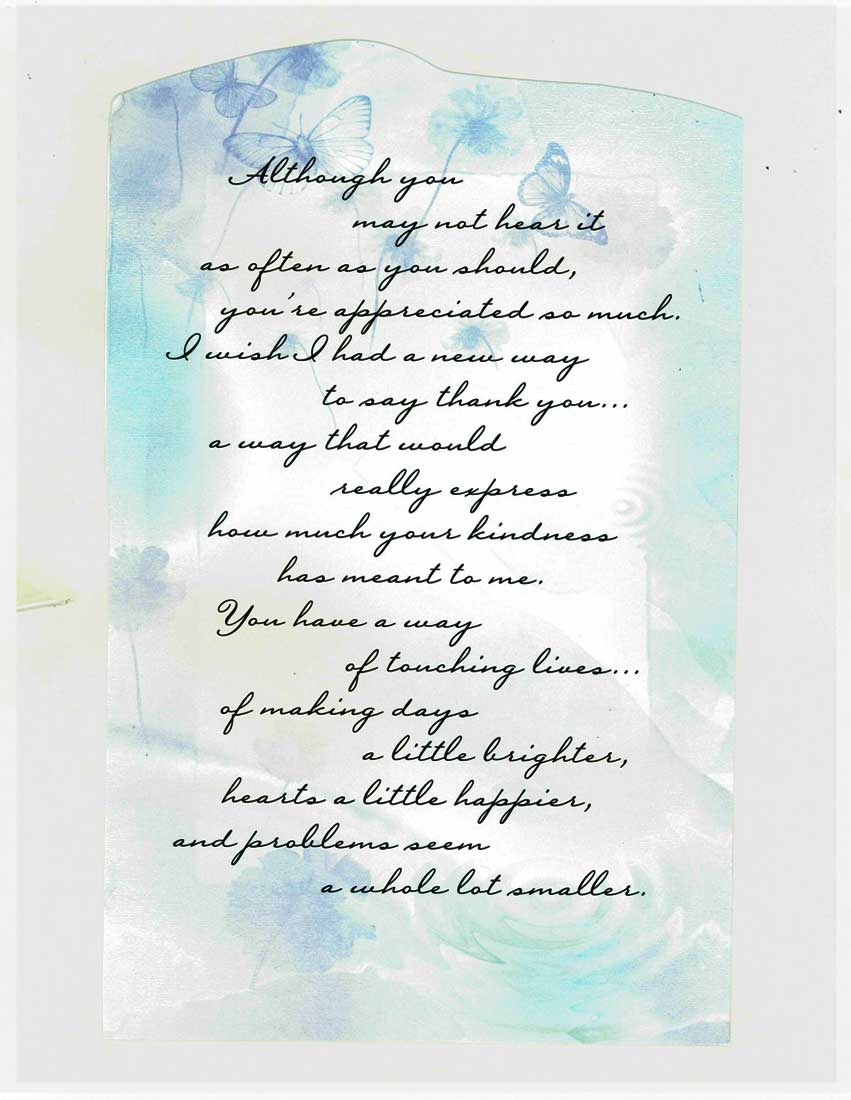 Although you
may not hear it
as often as you should,
you're appreciated so much.
I wish I had a new way
to say thank you...
a way that would
really express
how much your kindness
has meant to me.
You have a way
of touching lives...
of making days
a little brighter,
hearts a little happier,
and problems seem
a whole lot smaller.